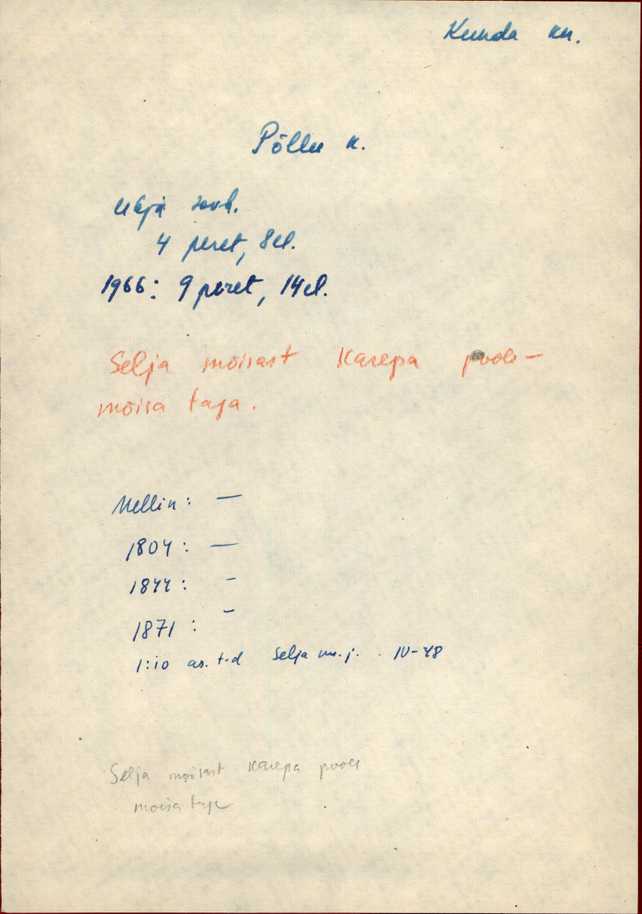 Kunda kn.
Põllu k.
Ubja sovh.
4 peret, 8 el.
1966: 9 peret, 14 el.
Selja mõisast Karepa poole-
mõisa taga.
Mellin: —
1804: —
1844: –
1871: –
1:10 as. t-d Selja m. j. IV-48
Selja mõisast Karepa poole
mõisa taga